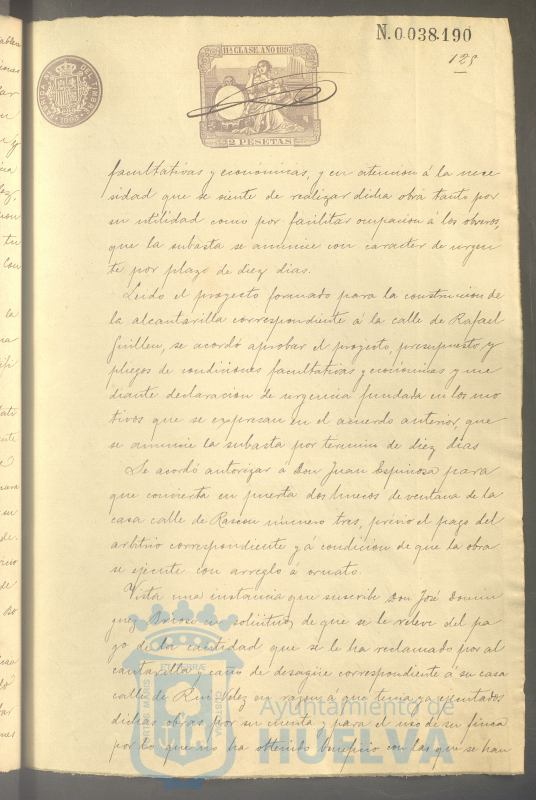 N.0.038.190
125
11ª CLASE. AÑO 1893
2 PESETAS
facultativas y económicas, y en atencion á la nece
sidad que se siente de realizar dicha obra tanto por
su utilidad como por facilitar ocupacion á los obreros,
que la subasta se anuncie con caracter de urgen
te por plazo de diez dias.
Leido el proyecto formado para la construccion de
la alcantarilla correspondiente á la calle de Rafael
Guillen, se acordó aprobar el proyecto, presupuesto y
pliegos de condiciones facultativas y económicas y me
diante declaracion de urgencia fundada en los mo
tivos que se expresan en el acuerdo anterior, que
se anuncie la subasta por termino de diez dias
Se acordó autorizar á Don Juan Espinosa para
que convierta en puerta dos huecos de ventana de la
casa calle de Rascon número tres, previo el pago del
arbitrio correspondiente y á condicion de que la obra
se ejecute con arreglo á ornato.
Vista una instancia que suscribe Don José Domin
guez en solicitud de que se le releve del pa
go de la cantidad que se le ha reclamado por al
cantarilla y caño de desagüe correspondiente á su casa
calle de Rui Velez en razon á que tenia ya ejecutadas
dichas obras por su cuenta y para el uso de su finca
por lo que no ha obtenido beneficio con las que se han
Ayuntamiento de
HUELVA